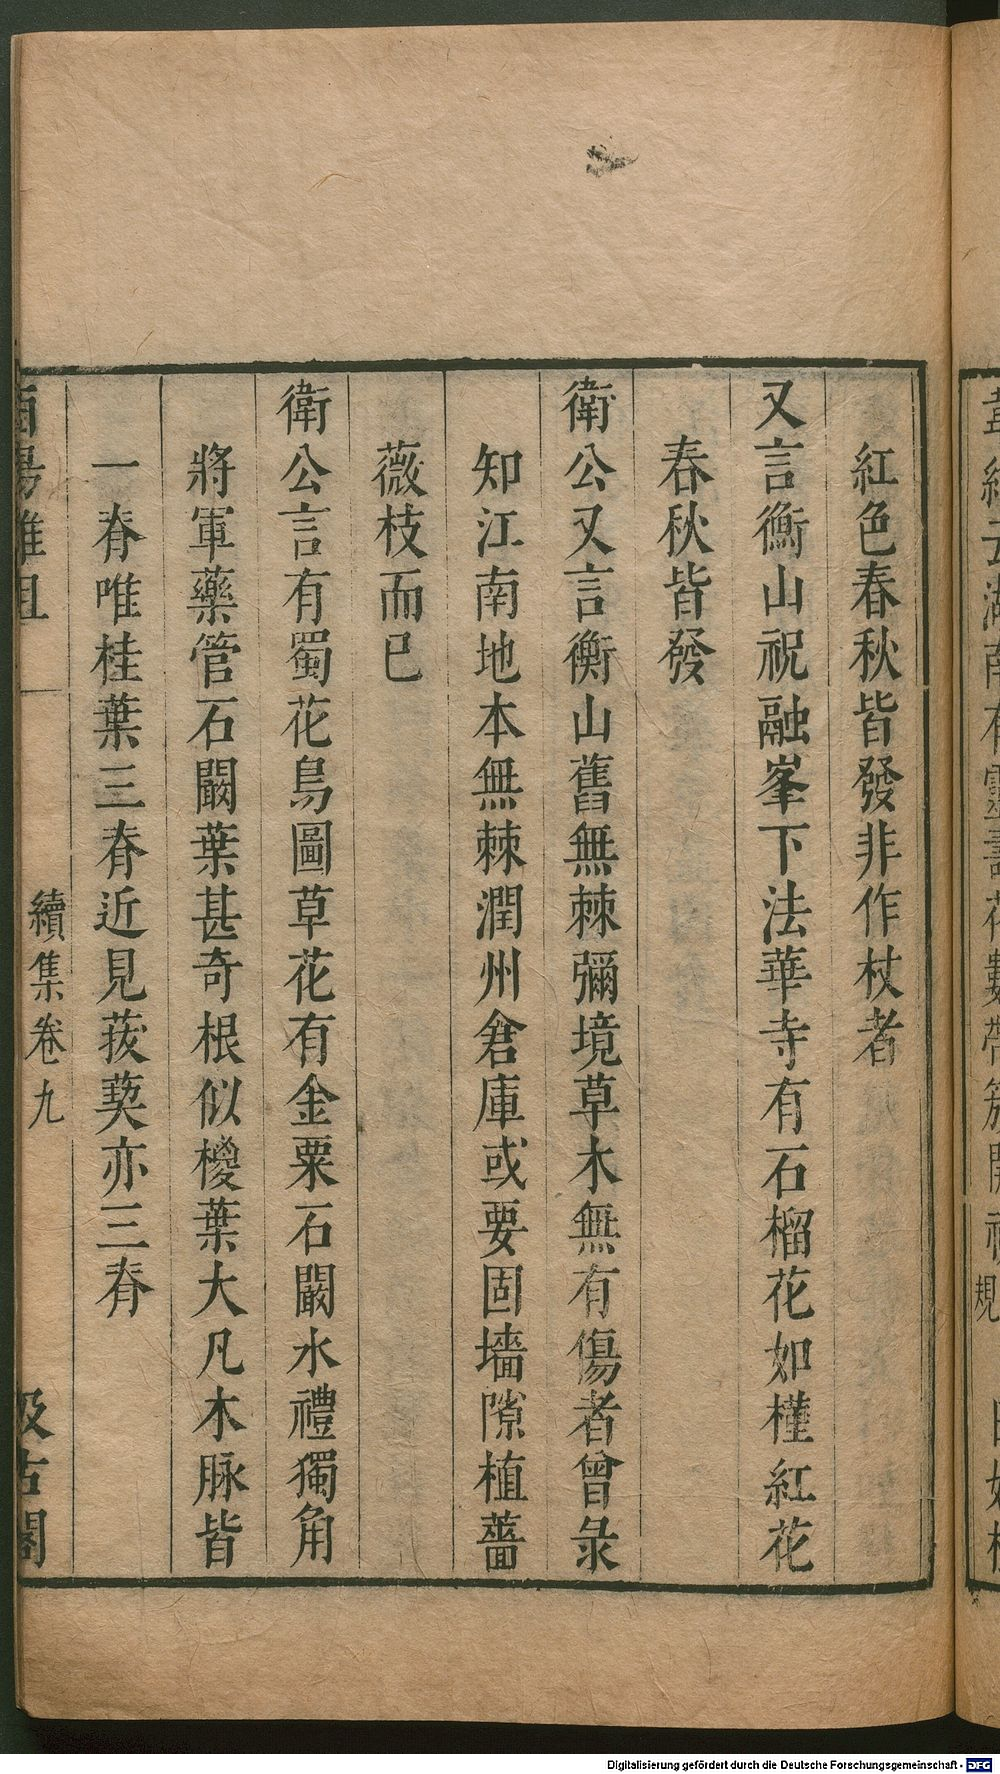 紅色春秋皆發非作杖者
又言衡山祝融峯下法華寺有石榴花如槿紅花
春秋皆發
衛公又言衡山舊無棘彌境草木無有傷者曾录
知江南地本無棘潤州倉庫或要固墻隙植薔
薇枝而已
衛公言有蜀花鳥圖草花有金粟石闞水禮獨角
將軍藥管石闞葉甚奇根似椶葉大凡木脉皆
一脊唯桂葉三脊近見菝葜亦三脊
酉陽雜俎
續集卷九
汲古閣
Digitalisierung gefördert durch die Deutsche Forschungsgemeinschaft - DFG